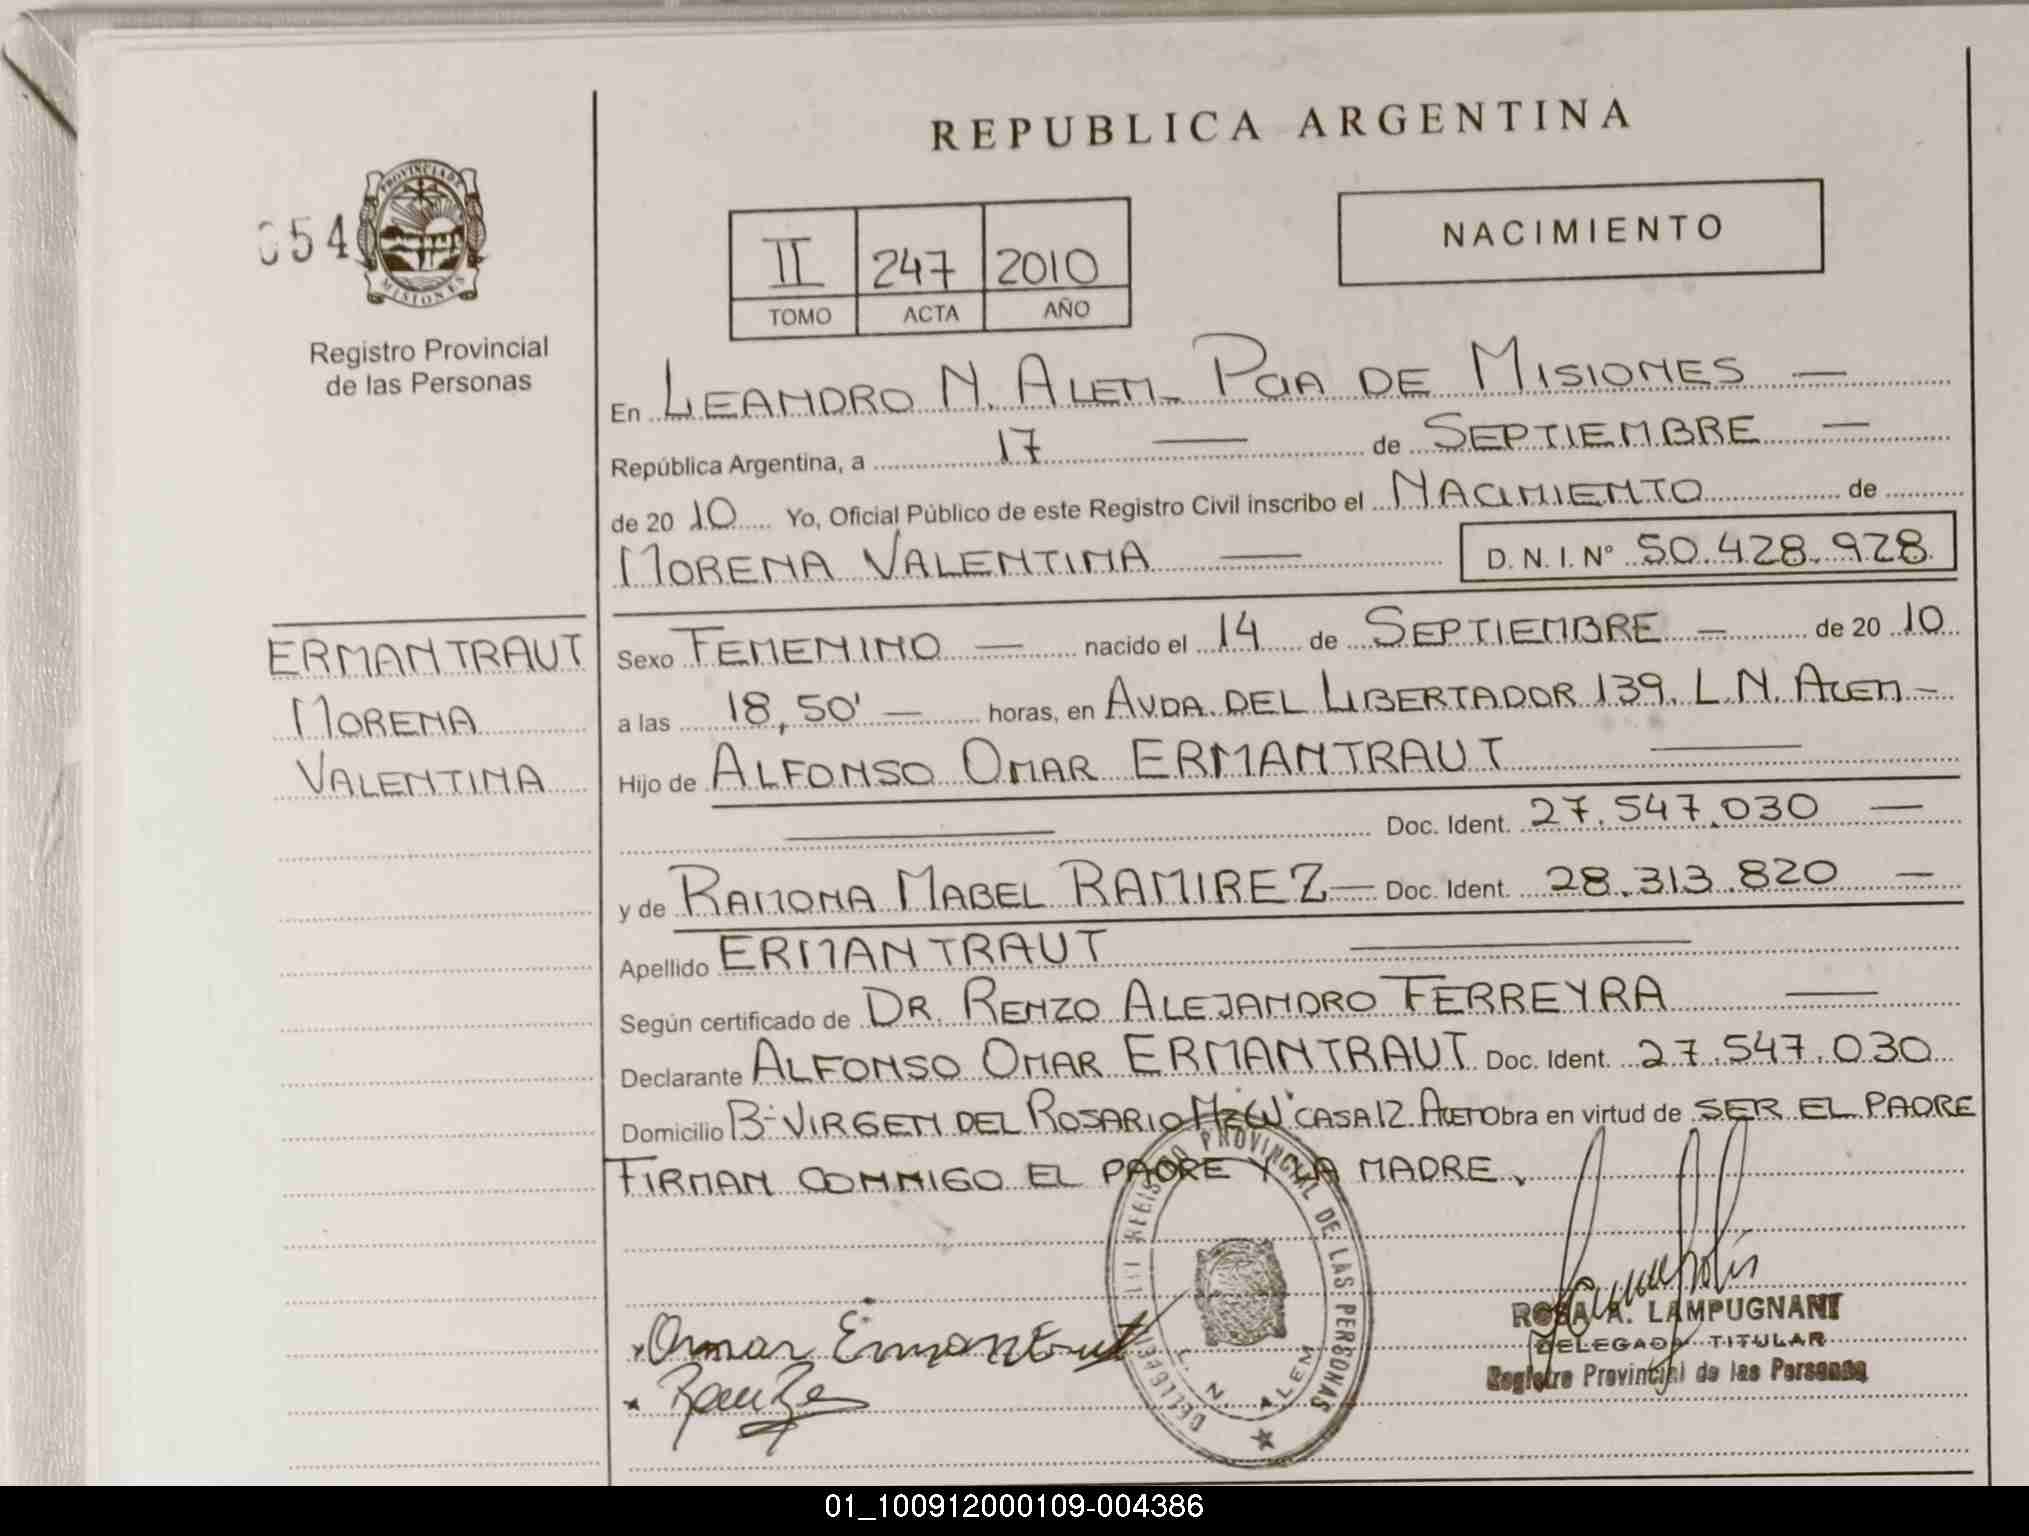 REPUBLICA ARGENTINA
054
PROVINCIA DE
MISIONES
Registro Provincial
de las Personas
II 247 2010
TOMO ACTA AÑO
NACIMIENTO
En LEANDRO N. ALEM - PCIA DE MISIONES —
República Argentina, a 17 — de SEPTIEMBRE —
de 20 10 Yo, Oficial Público de este Registro Civil inscribo el NACIMIENTO de
MORENA VALENTINA — D. N. I. Nº 50.428.928
ERMANTRAUT
MORENA
VALENTINA
Sexo FEMENINO — nacido el 14 de SEPTIEMBRE — de 20 10
a las 18,50' — horas, en AVDA. DEL LIBERTADOR 139. L.N. ALEM -
Hijo de ALFONSO OMAR ERMANTRAUT —
— Doc. Ident. 27.547.030 —
y de RAMONA MABEL RAMIREZ — Doc. Ident. 28.313.820 —
Apellido ERMANTRAUT —
Según certificado de DR. RENZO ALEJANDRO FERREYRA —
Declarante ALFONSO OMAR ERMANTRAUT Doc. Ident. 27.547.030
Domicilio Bº VIRGEN DEL ROSARIO Mz "W" CASA 12 ALEM Obra en virtud de SER EL PADRE
FIRMAN CONMIGO EL PADRE Y LA MADRE.
REGISTRO PROVINCIAL DE LAS PERSONAS
L. N. ALEM
Omar Ermantraut
ROSA A. LAMPUGNANI
DELEGADA TITULAR
Registro Provincial de las Personas
01_100912000109-004386